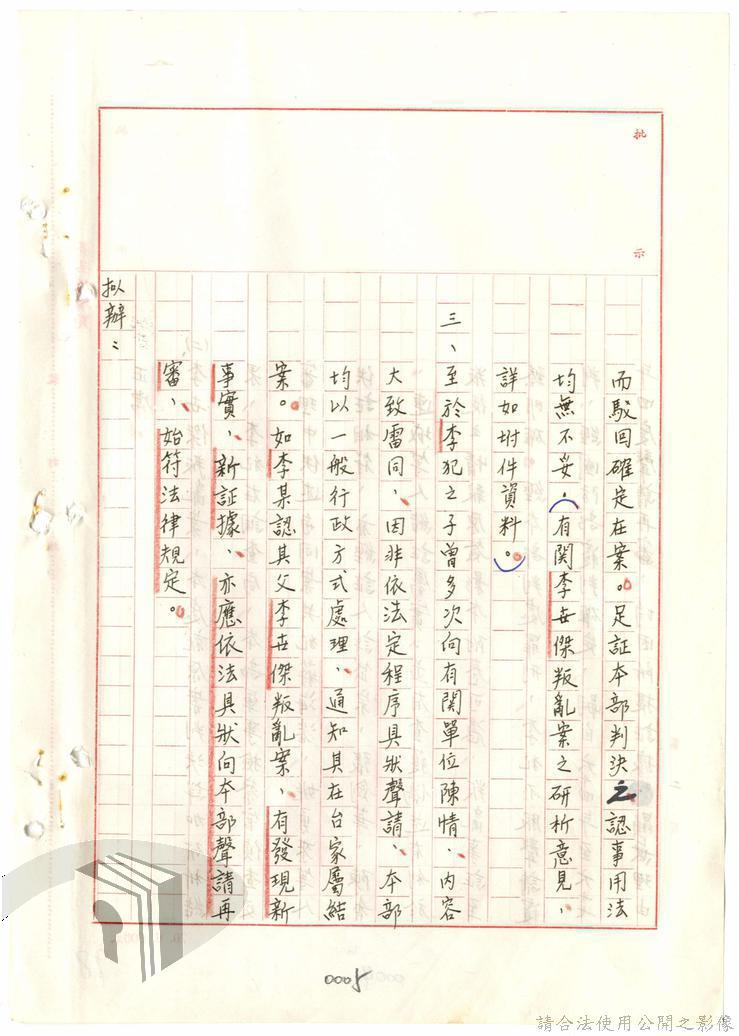 批示
而駁回確定在案。足証本部判決之認事用法
均無不妥，（有関李世傑叛亂案之研析意見，
詳如坿件資料。）
三、至於李犯之子曾多次向有関單位陳情，內容
大致雷同，因非依法定程序具狀聲請，本部
均以一般行政方式處理，通知其在台家屬結
案。如李某認其父李世傑叛亂案，有發現新
事實，新証據，亦應依法具狀向本部聲請再
審，始符法律規定。
拟辦：
0005
請合法使用公開之影像